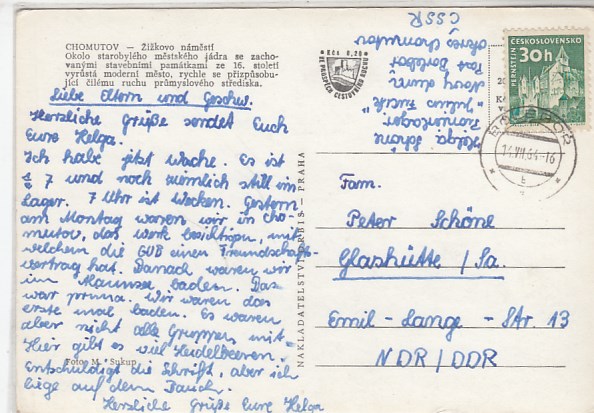 CHOMUTOV — Žižkovo náměstí
Okolo starobylého městského jádra se zacho-
vanými stavebními památkami ze 16. století
vyrůstá moderní město, rychle se přizpůsobu-
jící čilému ruchu průmyslového střediska.
Kčs 0,20
VE PROSPĚCH CESTOVNÍHO RUCHU
Liebe Eltern und Geschw.
Herzliche Grüße sendet Euch
Eure Helga.
Ich habe jetzt Wache. Es ist
7 und noch ziemlich still im
Lager. 7 Uhr ist Wecken. Gestern
am Montag waren wir in Cho-
mutov, das Werk besichtigen, mit
welchem die GUB einen Freundschafts-
vertrag hat. Danach waren wir
im baden. Das
war prima. Wir waren das
erste mal baden. Es waren
aber nicht alle Gruppen mit.
Hier gibt es viel Heidelbeeren.
Entschuldigt die Schrift, aber ich
liege auf dem Bauch.
Herzliche Grüße Eure Helga
Foto M. Sukup
NAKLADATELSTVÍ ORBIS — PRAHA
Helga Schöne
"Julius Fučik"
Nový
Post
okres Chomutov
CSSR
ČESKOSLOVENSKO
PERNŠTEJN
30h
14.VII.64-16
Fam.
Peter Schöne
Glashütte / Sa.
Emil - Lange - Str. 13
NDR / DDR